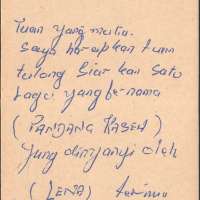 Tuan yang mulia.
Saya harapkan tuan
tolong siarkan satu
lagu yang bernama
(PANJANG KASEH)
yang dinyanyi oleh
(LENA)